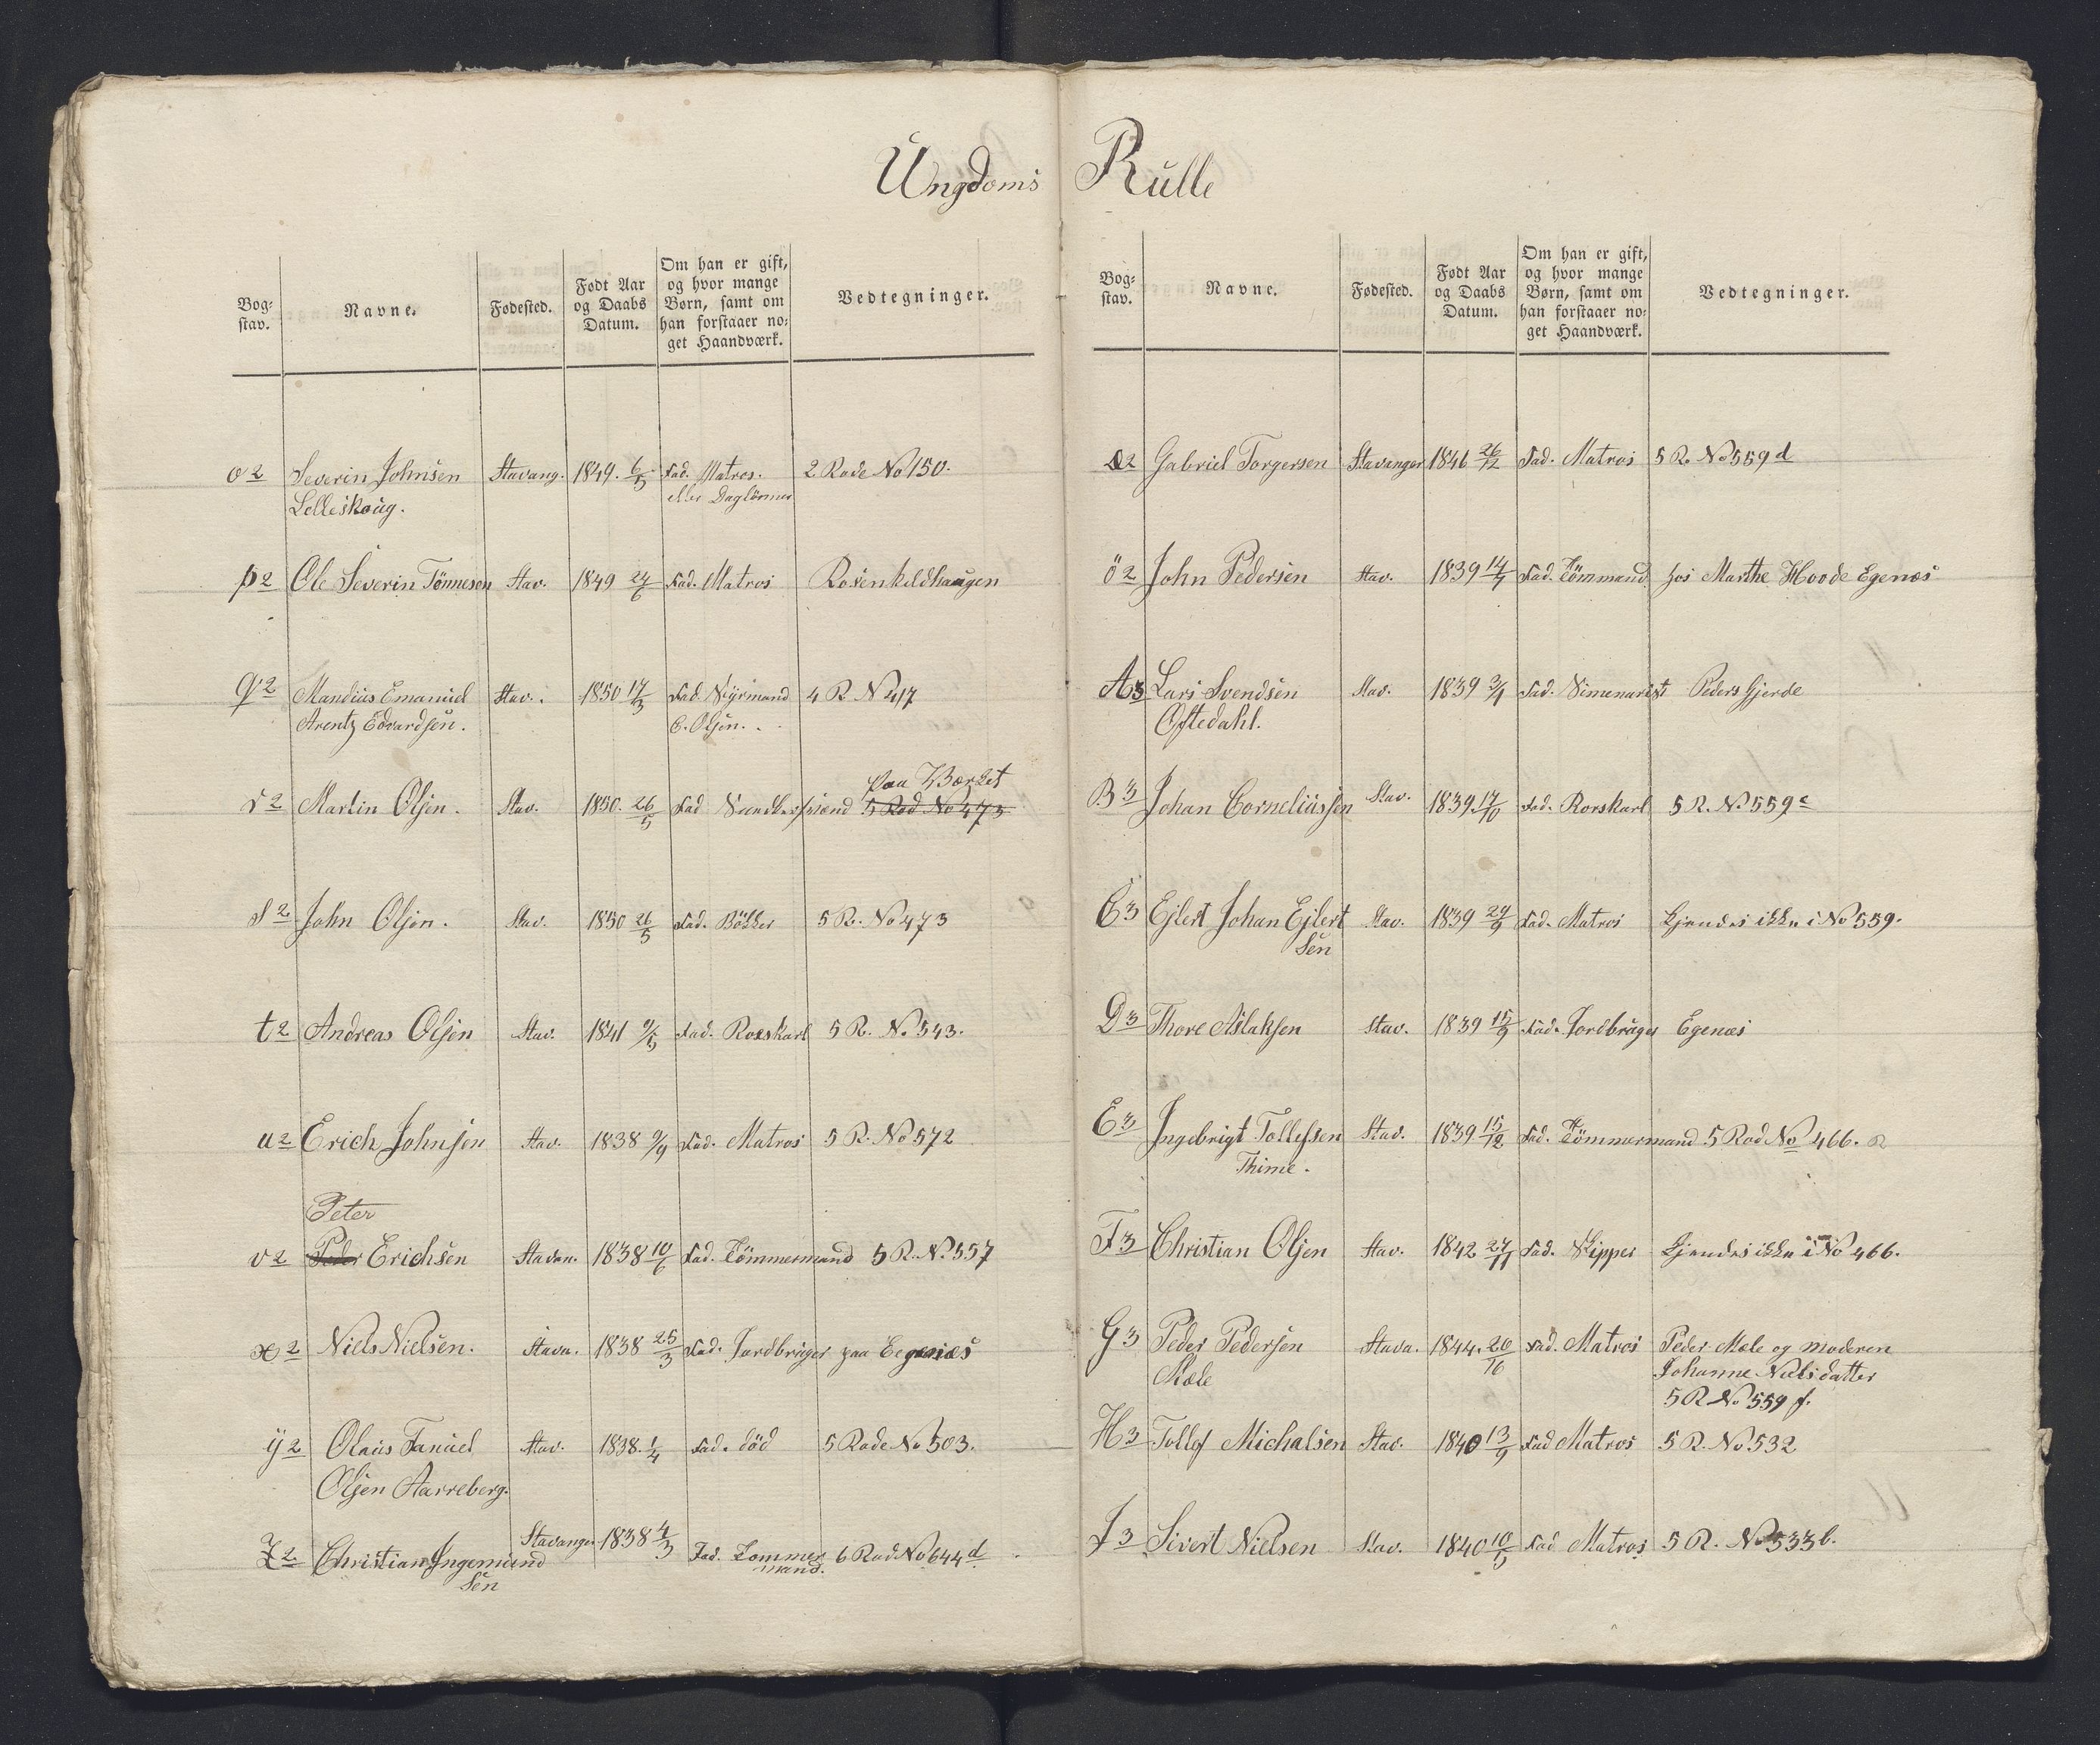 Ungdoms Rulle
Bog-
stav.
Navne.
Fødested.
Født Aar
og Daabs
Datum.
Om han er gift,
og hvor mange
Børn, samt om
han forstaaer no-
get Haandværk.
Vedtegninger.
o2 Severin Johnsen Stavang. 1849. 6/5 Fad. Matros. 2 Rode No 150.
Lelleskoug. eller Daglönner
p2 Ole Severin Tönnesen Stav. 1849 24/6 Fad. Matros Rosenkildhaugen
q2 Mandius Emanuel Stav. 1850 17/3 Fad. Styrmand 4 R. No 417
Arentz Edvardsen. E. Olsen.
paa Værket
r2 Martin Olsen. Stav. 1850. 26/5 Fad 5 Rod No 473
s2 John Olsen. Stav. 1850 26/5 Fad. Bökker 5 R. No 473
t2 Andreas Olsen Stav. 1841 9/5 Fad. Rorskarl 5 R. No 543.
u2 Erich Johnsen Stav. 1838 9/9 Fad. Matros 5 R. No 572
Peter
v2 Peder Erichsen Stavan. 1838 10/6 Fad. Tömmermand 5 R. No 557
x2 Niels Nielsen. Stava. 1838 25/3 Fad. Jordbruger paa Egenæs
ÿ2 Olaus Tanuel Stav. 1838. 1/4 Fad. död 5 Rode No 503.
Olsen Aarreberg.
Z2 Christian Ingemund Stavanger 1838 4/3 Fad. Tommer 6 Rod No 644 d
sen mand.
Bog-
stav.
Navne.
Fødested.
Født Aar
og Daabs
Datum.
Om han er gift,
og hvor mange
Børn, samt om
han forstaaer no-
get Haandværk.
Vedtegninger.
æ2 Gabriel Torgersen Stavanger 1846 26/12 Fad. Matros 5 R. No 559 d
ö2 John Pedersen Stav. 1839 14/7 Fad. Tömmand hos Marthe Hovde Egenæs
A3 Lars Svendsen Stav. 1839 3/1 Fad. Peders Gjerde
Oftedahl.
B3 Johan Corneliussen Stav. 1839 17/10 Fad. Rorskarl 5 R. No 559 c
C3 Ejlert Johan Ejlert Stav. 1839 29/9 Fad. Matros kjendes ikke i No 559.
sen
D3 Thore Aslaksen Stav. 1839 15/9 Fad. Jordbruger Egenæs
E3 Ingebrigt Tollefsen Stav. 1839 15/12 Fad. Tömmermand 5 Rod No 466. a
Thime.
F3 Christian Olsen Stav. 1842 27/11 Fad. Skipper kjendes ikke i No 466.
G3 Peder Pedersen Stava. 1844. 20/10 Fad. Matros Peder Mæle og moderen
Mæle Johanne Nielsdatter
5 R No 559 f.
H3 Tollef Michalsen Stav. 1840 13/9 Fad Matros 5 R. No 532
J3 Sivert Nielsen Stav. 1840 10/5 Fad Matros 5 R. No 533 b.